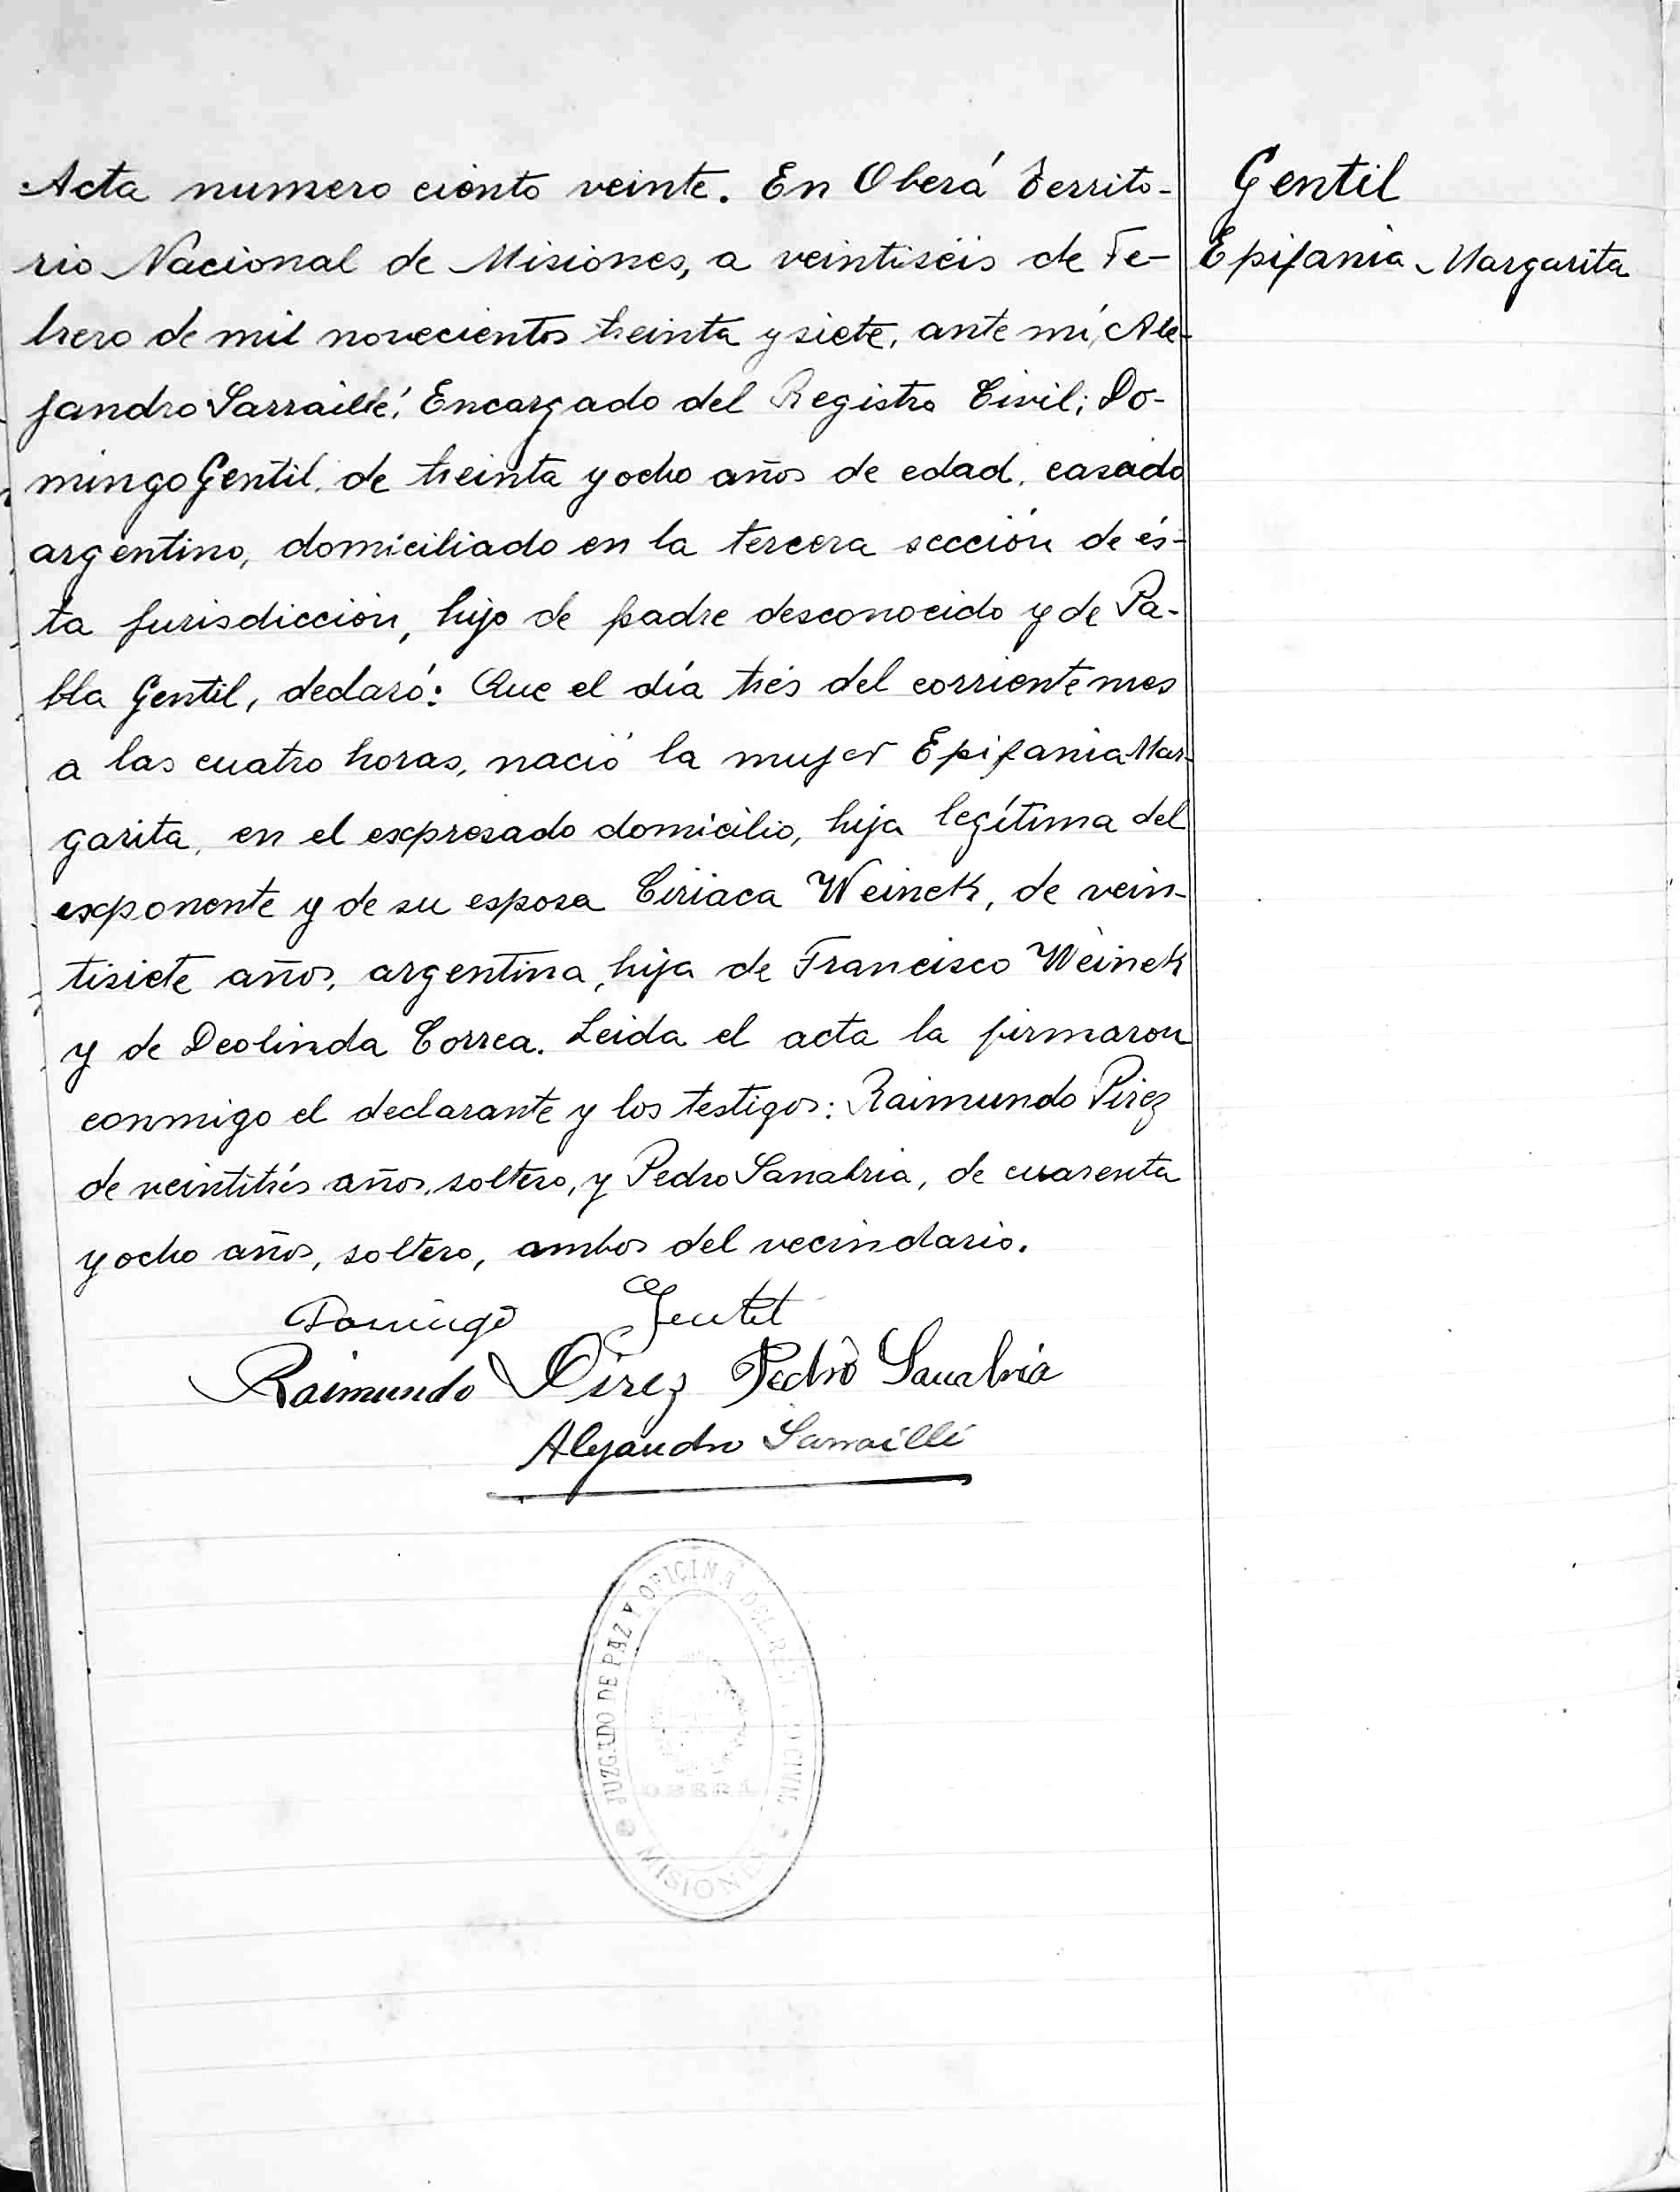 Acta numero ciento veinte. En Oberá Territo-
rio Nacional de Misiones, a veintiséis de Fe-
brero de mil novecientos treinta y siete, ante mí, Ale-
jandro Sarraillé, Encargado del Registro Civil; Do-
mingo Gentil, de treinta y ocho años de edad, casado
argentino, domiciliado en la tercera sección de és-
ta jurisdicción, hijo de padre desconocido y de Pa-
bla Gentil, declaró: Que el día trés del corriente mes
a las cuatro horas, nació la mujer Epifania Mar-
garita, en el expresado domicilio, hija legítima del
exponente y de su esposa Ciriaca Weinck, de vein-
tisiete años, argentina, hija de Francisco Weinck
y de Deolinda Correa. Leida el acta la firmaron
conmigo el declarante y los testigos: Raimundo Pirez
de veintitrés años, soltero, y Pedro Sanabria, de cuarenta
y ocho años, soltero, ambos del vecindario.
Domingo Gentil
Raimundo Pirez Pedro Sanabria
Alejandro Sarraillé
Gentil
Epifania Margarita
JUZGADO DE PAZ Y OFICINA DEL REGISTRO CIVIL
OBERÁ
MISIONES